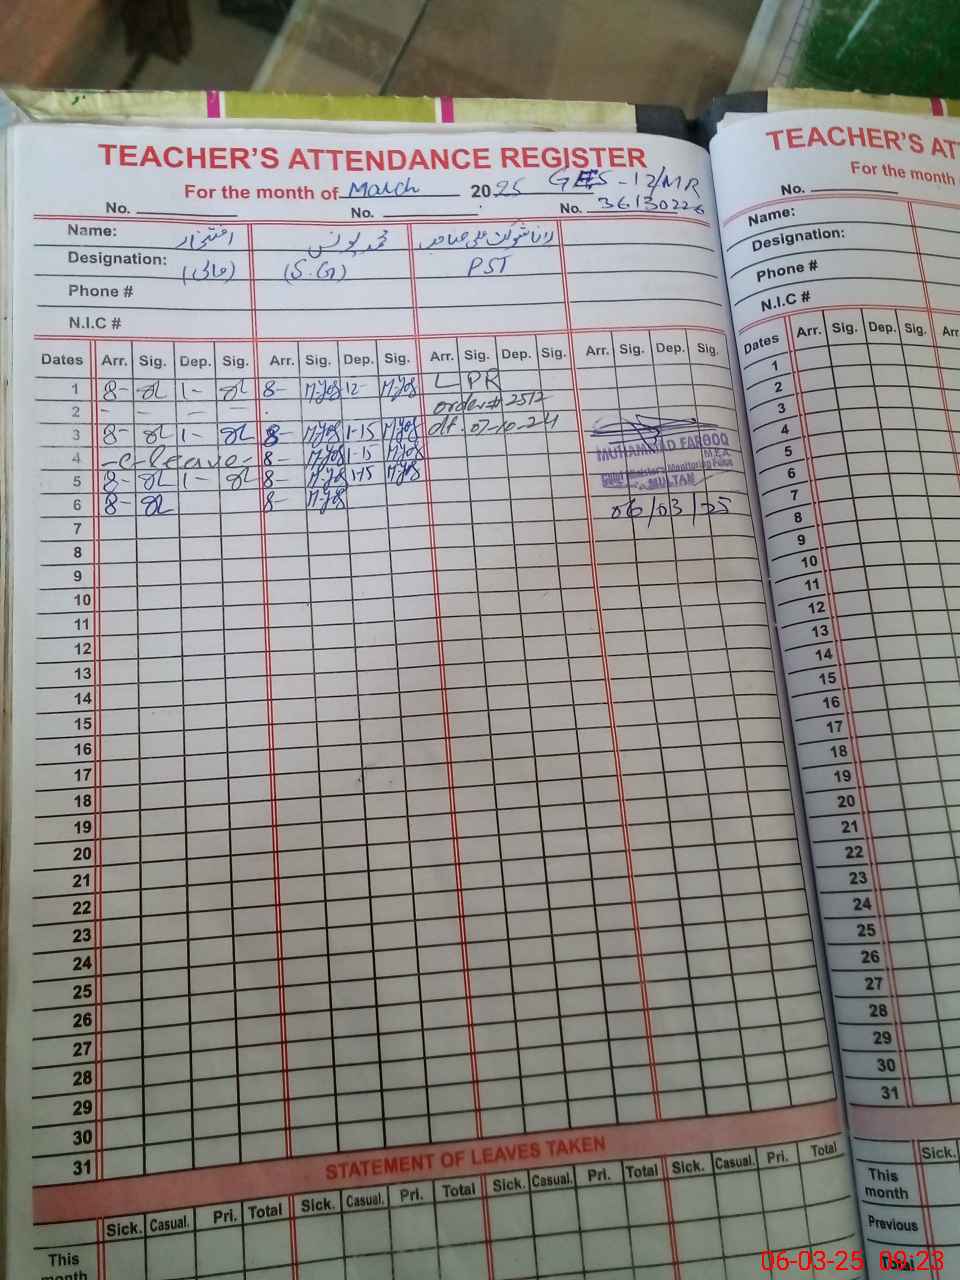 TEACHER'S ATTENDANCE REGISTER
For the month of March 2025 GES-12/MR
No. No. No. 36130226
Name: افتخار محمد یونس رانا شوکت علی صاحب
Designation: (مالی) (S.G) PST
Phone #
N.I.C #
Dates Arr. Sig. Dep. Sig. Arr. Sig. Dep. Sig. Arr. Sig. Dep. Sig. Arr. Sig. Dep. Sig.
1 8- 1- 8- 12- LPR
2 - - - - order # 2512
3 8- 1- 8- 1-15 dt. 07-10-24
4 -C-leave- 8- 1-15
MUHAMMAD FAROOQ
M.E.A
5 8- 1- 8- 1-15
Chief Minister's Monitoring Force
MULTAN
6 8- 8- 06/03/25
7
8
9
10
11
12
13
14
15
16
17
18
19
20
21
22
23
24
25
26
27
28
29
30
31
STATEMENT OF LEAVES TAKEN
Sick. Casual. Pri. Total Sick. Casual. Pri. Total Sick. Casual. Pri. Total Sick. Casual. Pri. Total
This
month
TEACHER'S AT
For the month
No.
Name:
Designation:
Phone #
N.I.C #
Dates Arr. Sig. Dep. Sig. Arr
1
2
3
4
5
6
7
8
9
10
11
12
13
14
15
16
17
18
19
20
21
22
23
24
25
26
27
28
29
30
31
Sick.
This
month
Previous
06-03-25 09:23